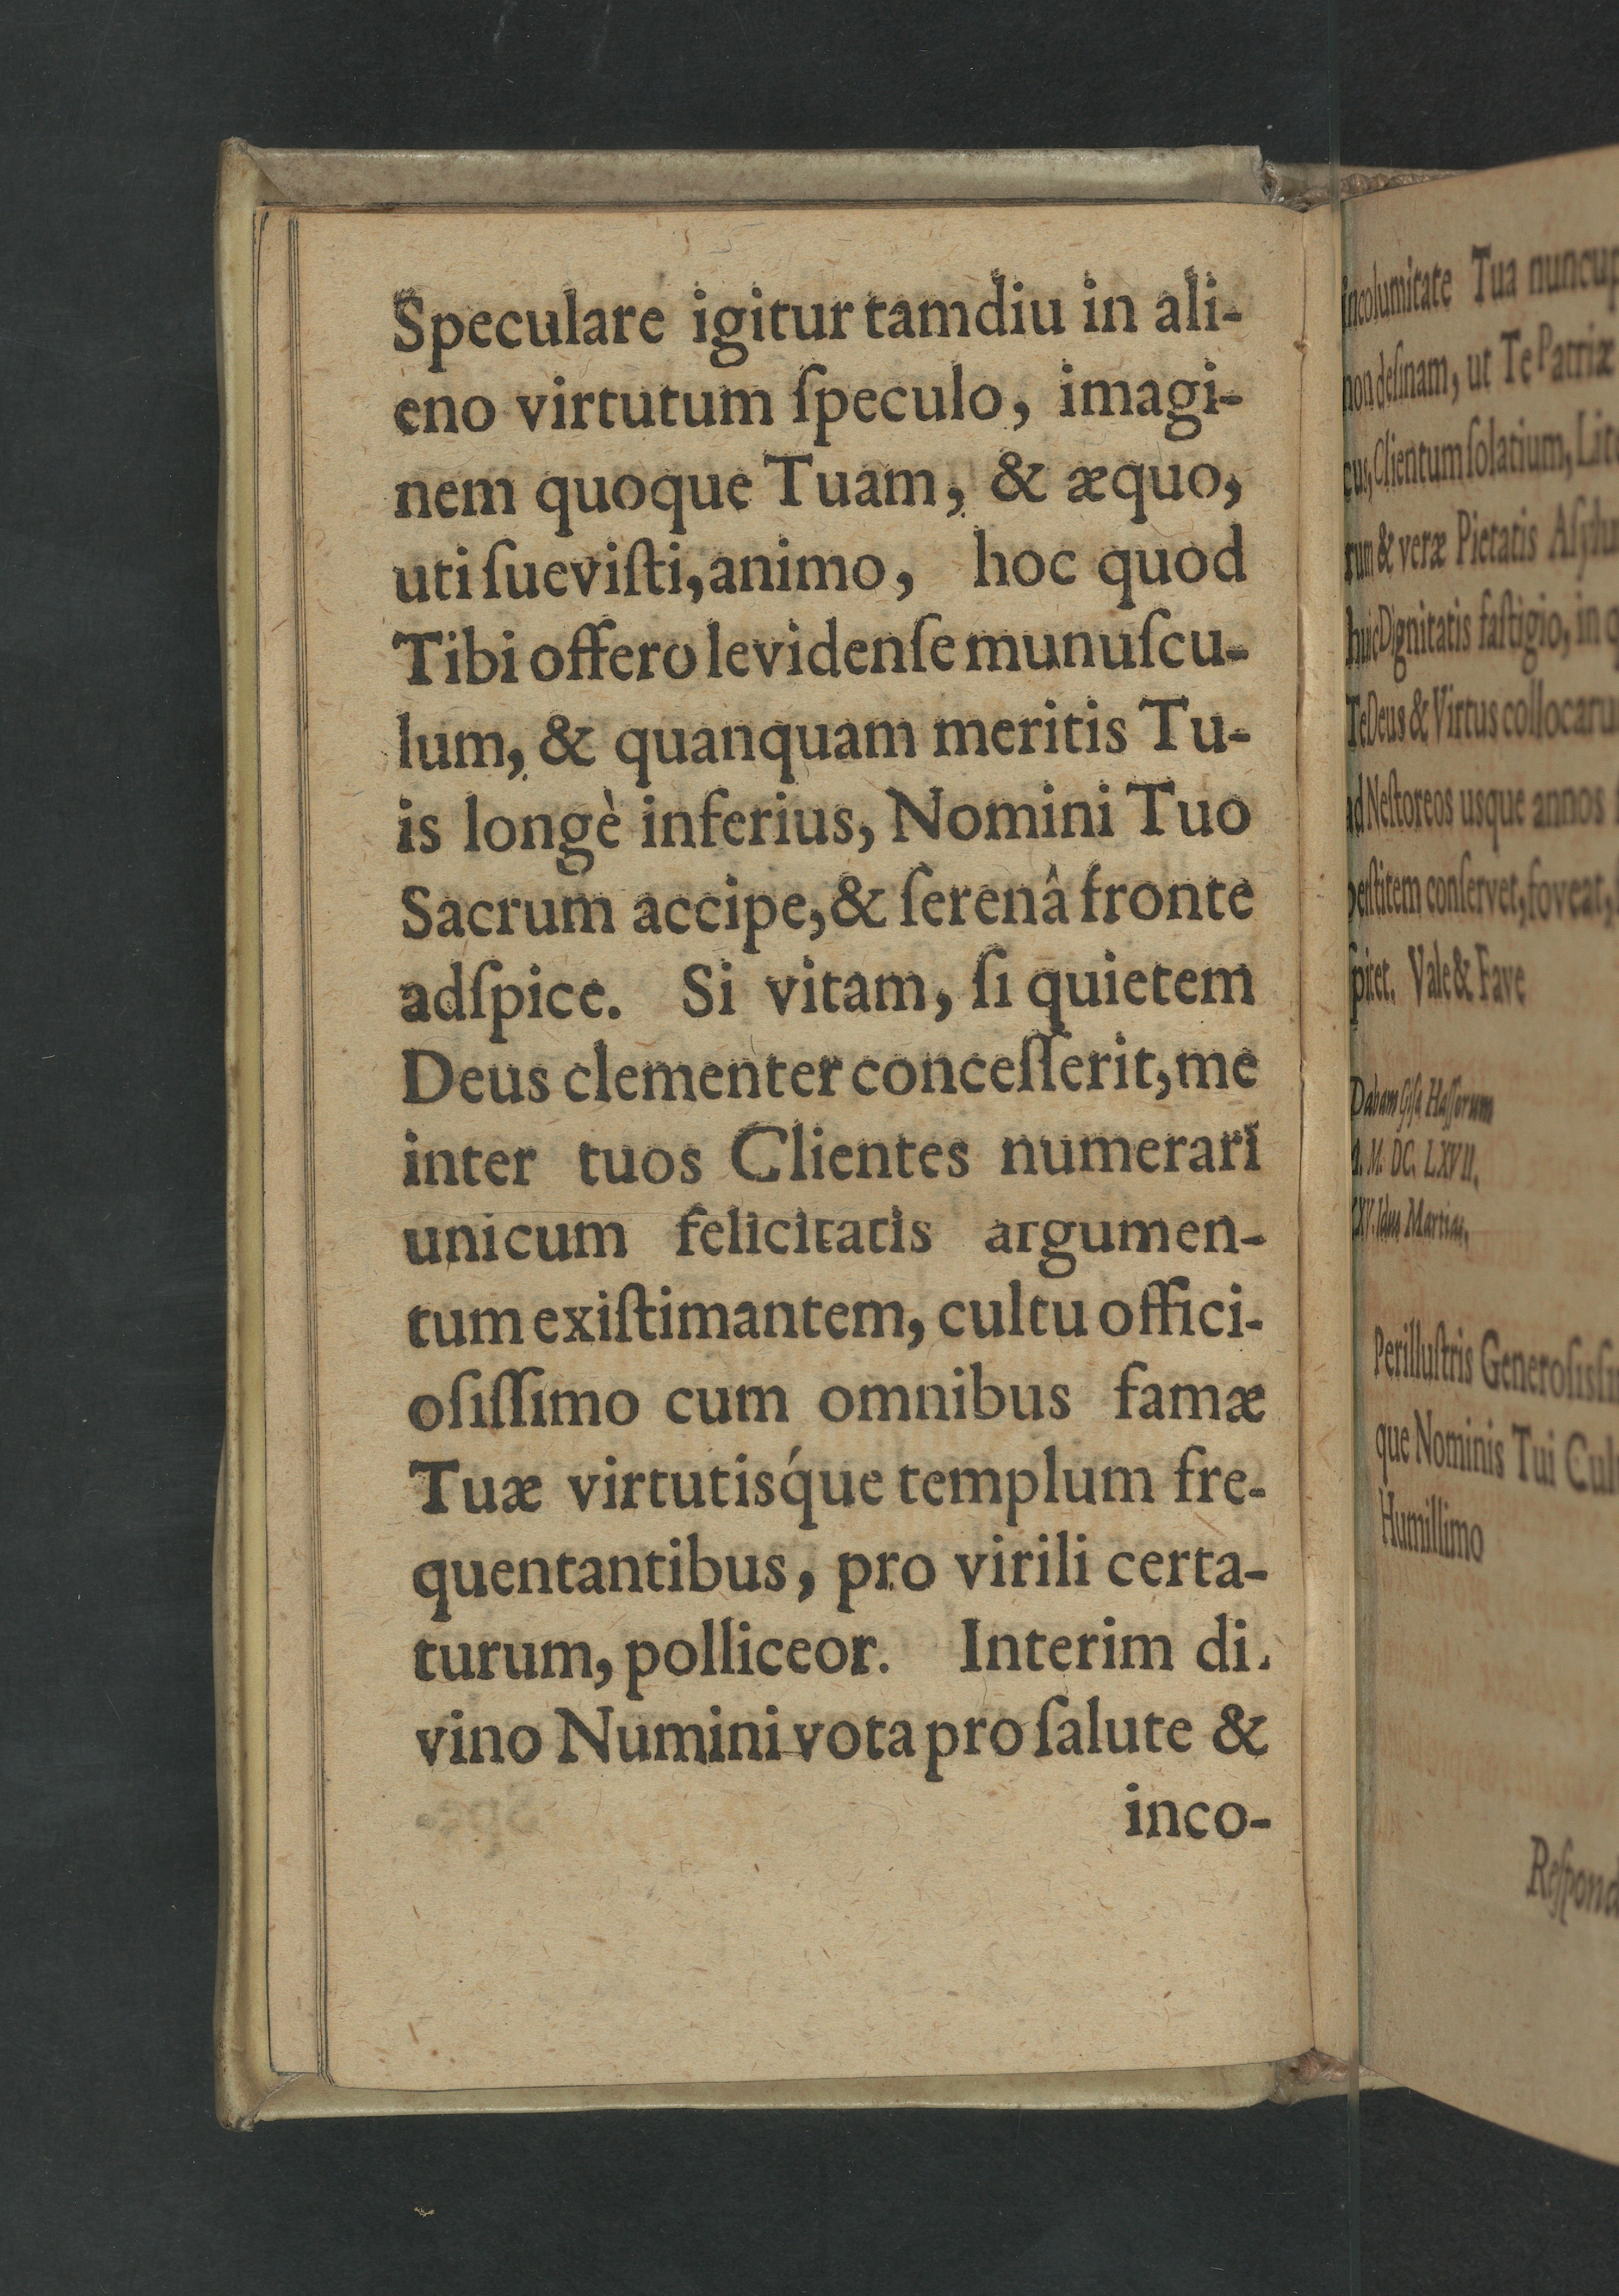 Speculare igitur tamdiu in ali-
eno virtutum ſpeculo, imagi-
nem quoque Tuam, & æquo,
uti ſueviſti, animo, hoc quod
Tibi offero levidenſe munuſcu-
lum, & quanquam meritis Tu-
is longè inferius, Nomini Tuo
Sacrum accipe, & ſerenâ fronte
adſpice. Si vitam, ſi quietem
Deus clementer conceſſerit, me
inter tuos Clientes numerari
unicum felicitatis argumen-
tum exiſtimantem, cultu offici-
oſiſſimo cum omnibus famæ
Tuæ virtutisq́ue templum fre-
quentantibus, pro virili certa-
turum, polliceor. Interim di-
vino Numini vota pro ſalute &
inco-
incolumitate Tua
non deſinam, ut Te Patriæ
Clientum ſolatium,
& veræ Pietatis
huic Dignitatis faſtigio, in
Te Deus & Virtus
ad Neſtoreos usque annos
conſervet, foveat,
Vale & Fave
Dabam Giſſæ Haſſorum
M. DC. LXVII.
Idus Martias.
Perilluſtris
que Nominis Tui
Humillimo